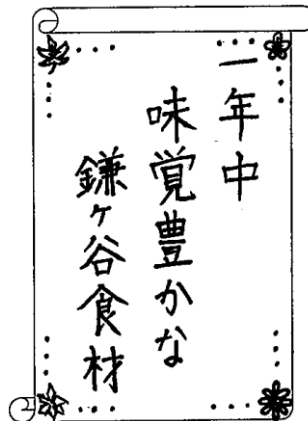 一年中
味覚豊かな
鎌ヶ谷食材